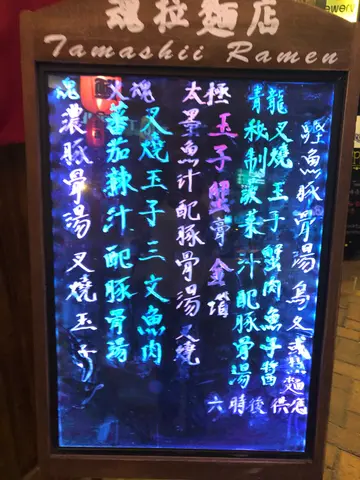 魂拉麵店
Tamashii Ramen
鰹魚豚骨湯烏冬或麵
青龍 叉燒 玉子 蟹肉魚子醬
秘制菠菜汁配豚骨湯
六時後供應
太極 玉子 蟹膏
墨魚汁配豚骨湯 叉燒
魂 叉燒玉子三文魚肉
蕃茄辣汁配豚骨湯
魂 濃豚骨湯 叉燒玉子